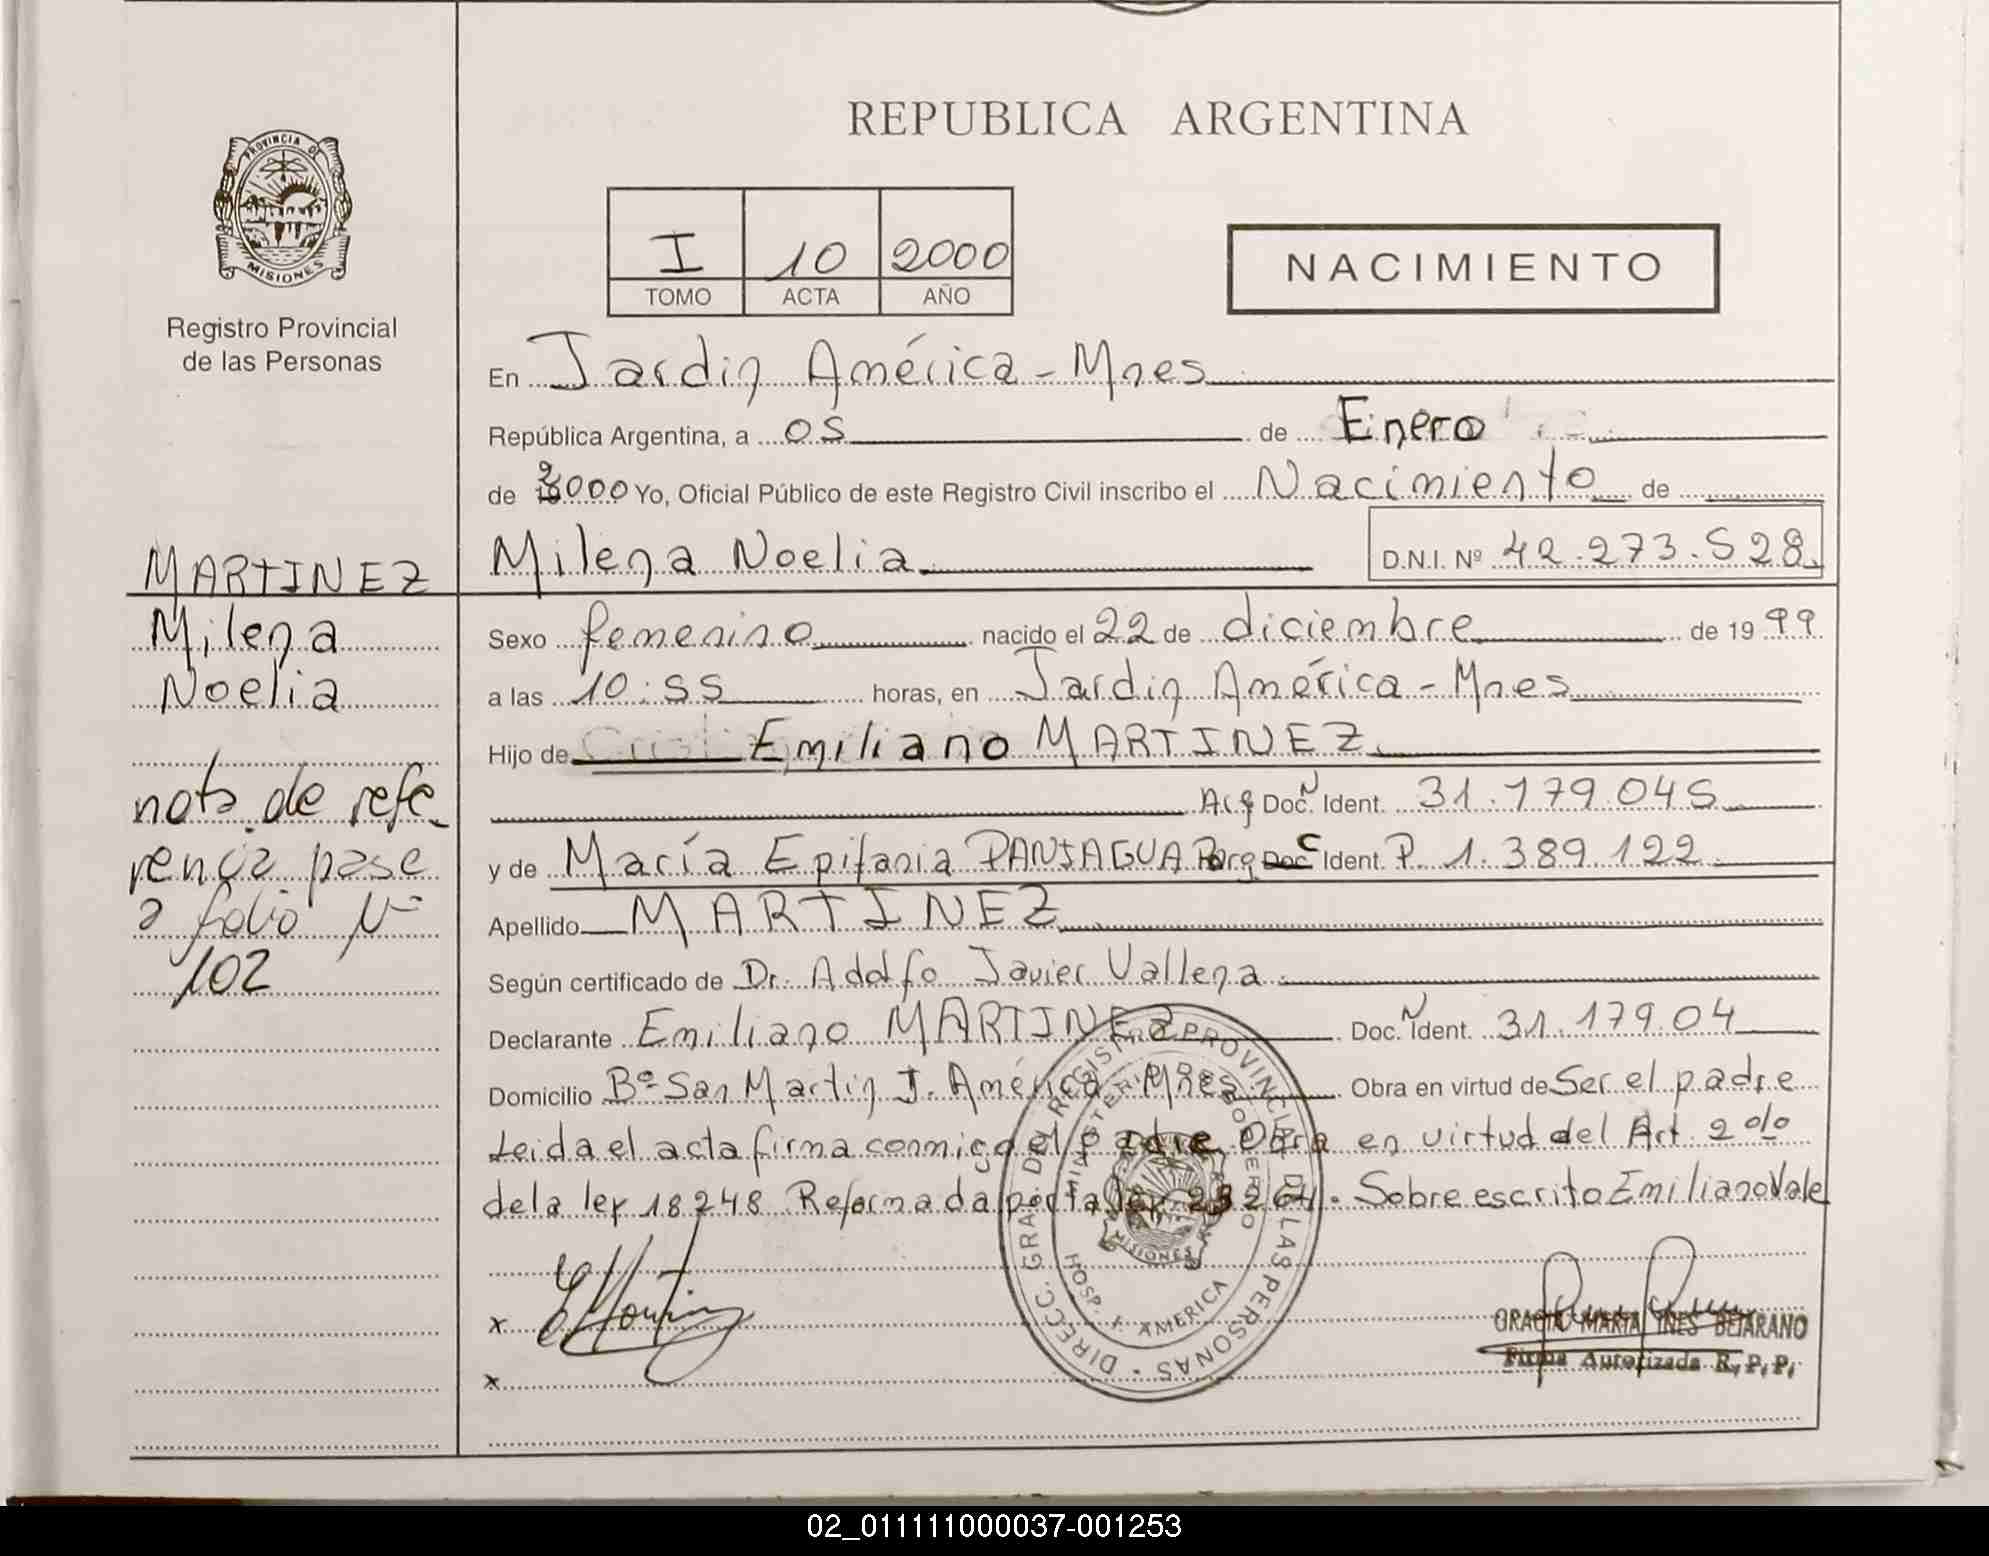 REPUBLICA ARGENTINA
PROVINCIA DE
MISIONES
Registro Provincial
de las Personas
I 10 2000
TOMO ACTA AÑO
NACIMIENTO
En Jardin América - Mnes
República Argentina, a 05 de Enero
de 2000 Yo, Oficial Público de este Registro Civil inscribo el Nacimiento de
Milena Noelia D.N.I. Nº 42.273.528
MARTINEZ
Milena
Noelia
nota de refe
rencia pase
a folio Nº
102
Sexo femenino nacido el 22 de diciembre de 1999
a las 10:55 horas, en Jardin América - Mnes
Hijo de Emiliano MARTINEZ
Arg Doc. N Ident. 31.179.045
y de María Epifania PANIAGUA Parg Doc C Ident. P. 1.389.122
Apellido MARTINEZ
Según certificado de Dr. Adolfo Javier Vallena
Declarante Emiliano MARTINEZ Doc. N Ident. 31.179.04
Domicilio Bº San Martin J. América Mnes Obra en virtud de Ser el padre
Leida el acta firma conmigo el padre Obra en virtud del Art 2º/o
de la ley 18248 Reformada por la ley 23264. Sobre escrito Emiliano Vale
DIRECC. GRAL. DEL REGISTRO PROVINCIAL DE LAS PERSONAS
MINISTERIO DE GOBIERNO
HOSP. J. AMERICA
MISIONES
x
x
GRACIA MARIA INES BEJARANO
Firma Autorizada R. P. P.
02_011111000037-001253